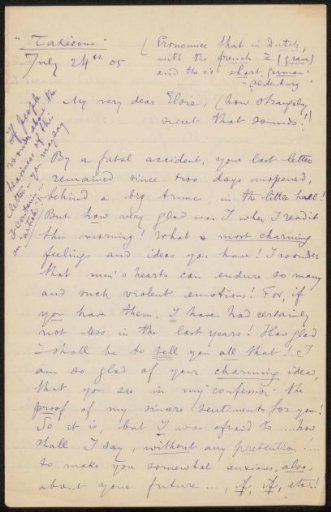 "Takesono"
July 24th 05
(Pronounce that in Dutch,
with the french z (grave)
and the o's short, german
My very dear Elsie, (how strangely
sweet that sounds!)
By a fatal accident, your last letter
remained since two days unopened,
behind a big trunc, in the letter hall!
But how very glad was I when I read it
this morning! What a most charming
feelings and ideas you have! I wonder
that men's hearts can endure so many
and such violent emotions! For, if
you have them, I have had certainly
not less in the last years! How glad
I shall be to tell you all that! I
am so glad of your charming idea,
that you see in my "confession" the
proof of my sincere sentiments for you!
So it is, but I was afraid to .... how
shall I say, without any pretention!...
to make you somewhat anxious, also,
about your future...., if, if, etc!
If people
about the
of this
letter, you may say